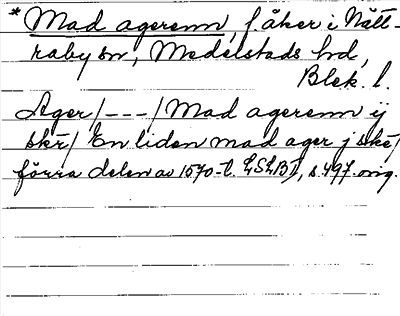 * Mad agerenn, f åker i Nätt-
raby sn, Medelstads hd,
Blek. l.
Ager/---/Mad agerenn ij
skr/ En liden mad ager j skr/
förra delen av 1570-t. LSLB I, s. 497. orig.